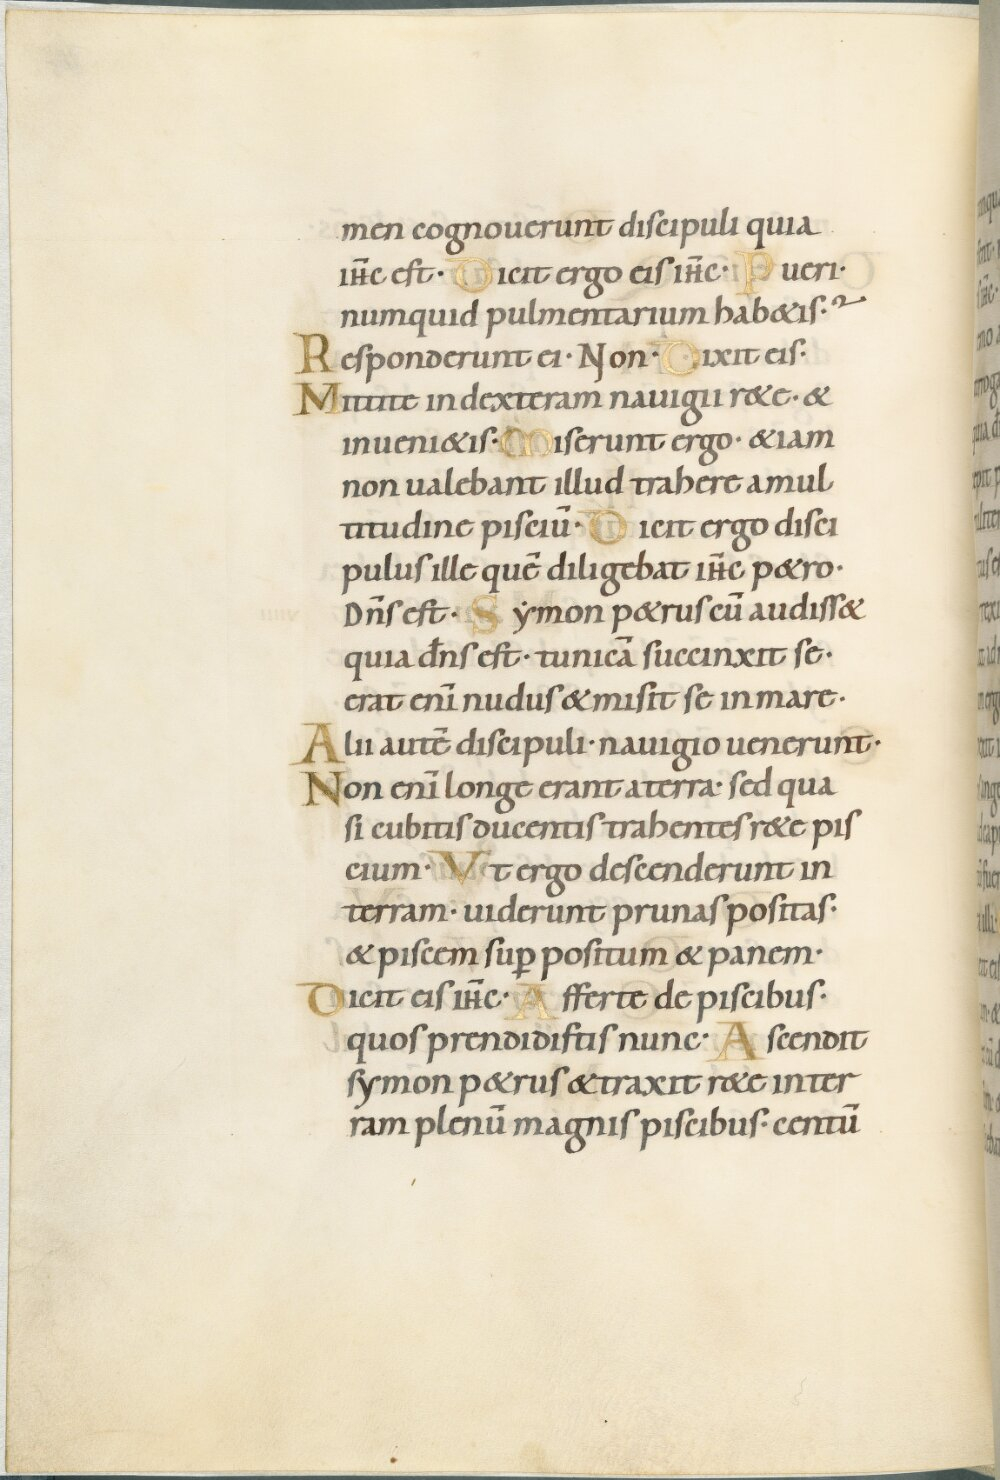 men cognouerunt discipuli quia
ihc̄ est· Dicit ergo eis ihc̄· Pueri·
numquid pulmentarium hab&is·
Responderunt ei· Non· Dixit eis·
Mittite in dexteram nauigii r&e· &
inueni&is· Miserunt ergo· & iam
non ualebant illud trahere a mul
titudine pisciū· Dicit ergo disci
pulus ille quē diligebat ihc̄ p&ro·
Dn̄s est· Symon p&rus cū audiss&
quia dn̄s est· tunicā succinxit se·
erat enī nudus & misit se in mare·
Alii autē discipuli· nauigio uenerunt·
Non enī longe erant a terra· sed qua
si cubitis ducentis trahentes r&e pis
cium· Vt ergo descenderunt in
terram· uiderunt prunas positas·
& piscem sup̱ positum & panem·
Dicit eis ihc̄· Afferte de piscibus·
quos prendidistis nunc· Ascendit
symon p&rus & traxit r&e in ter
ram plenū magnis piscibus· centū